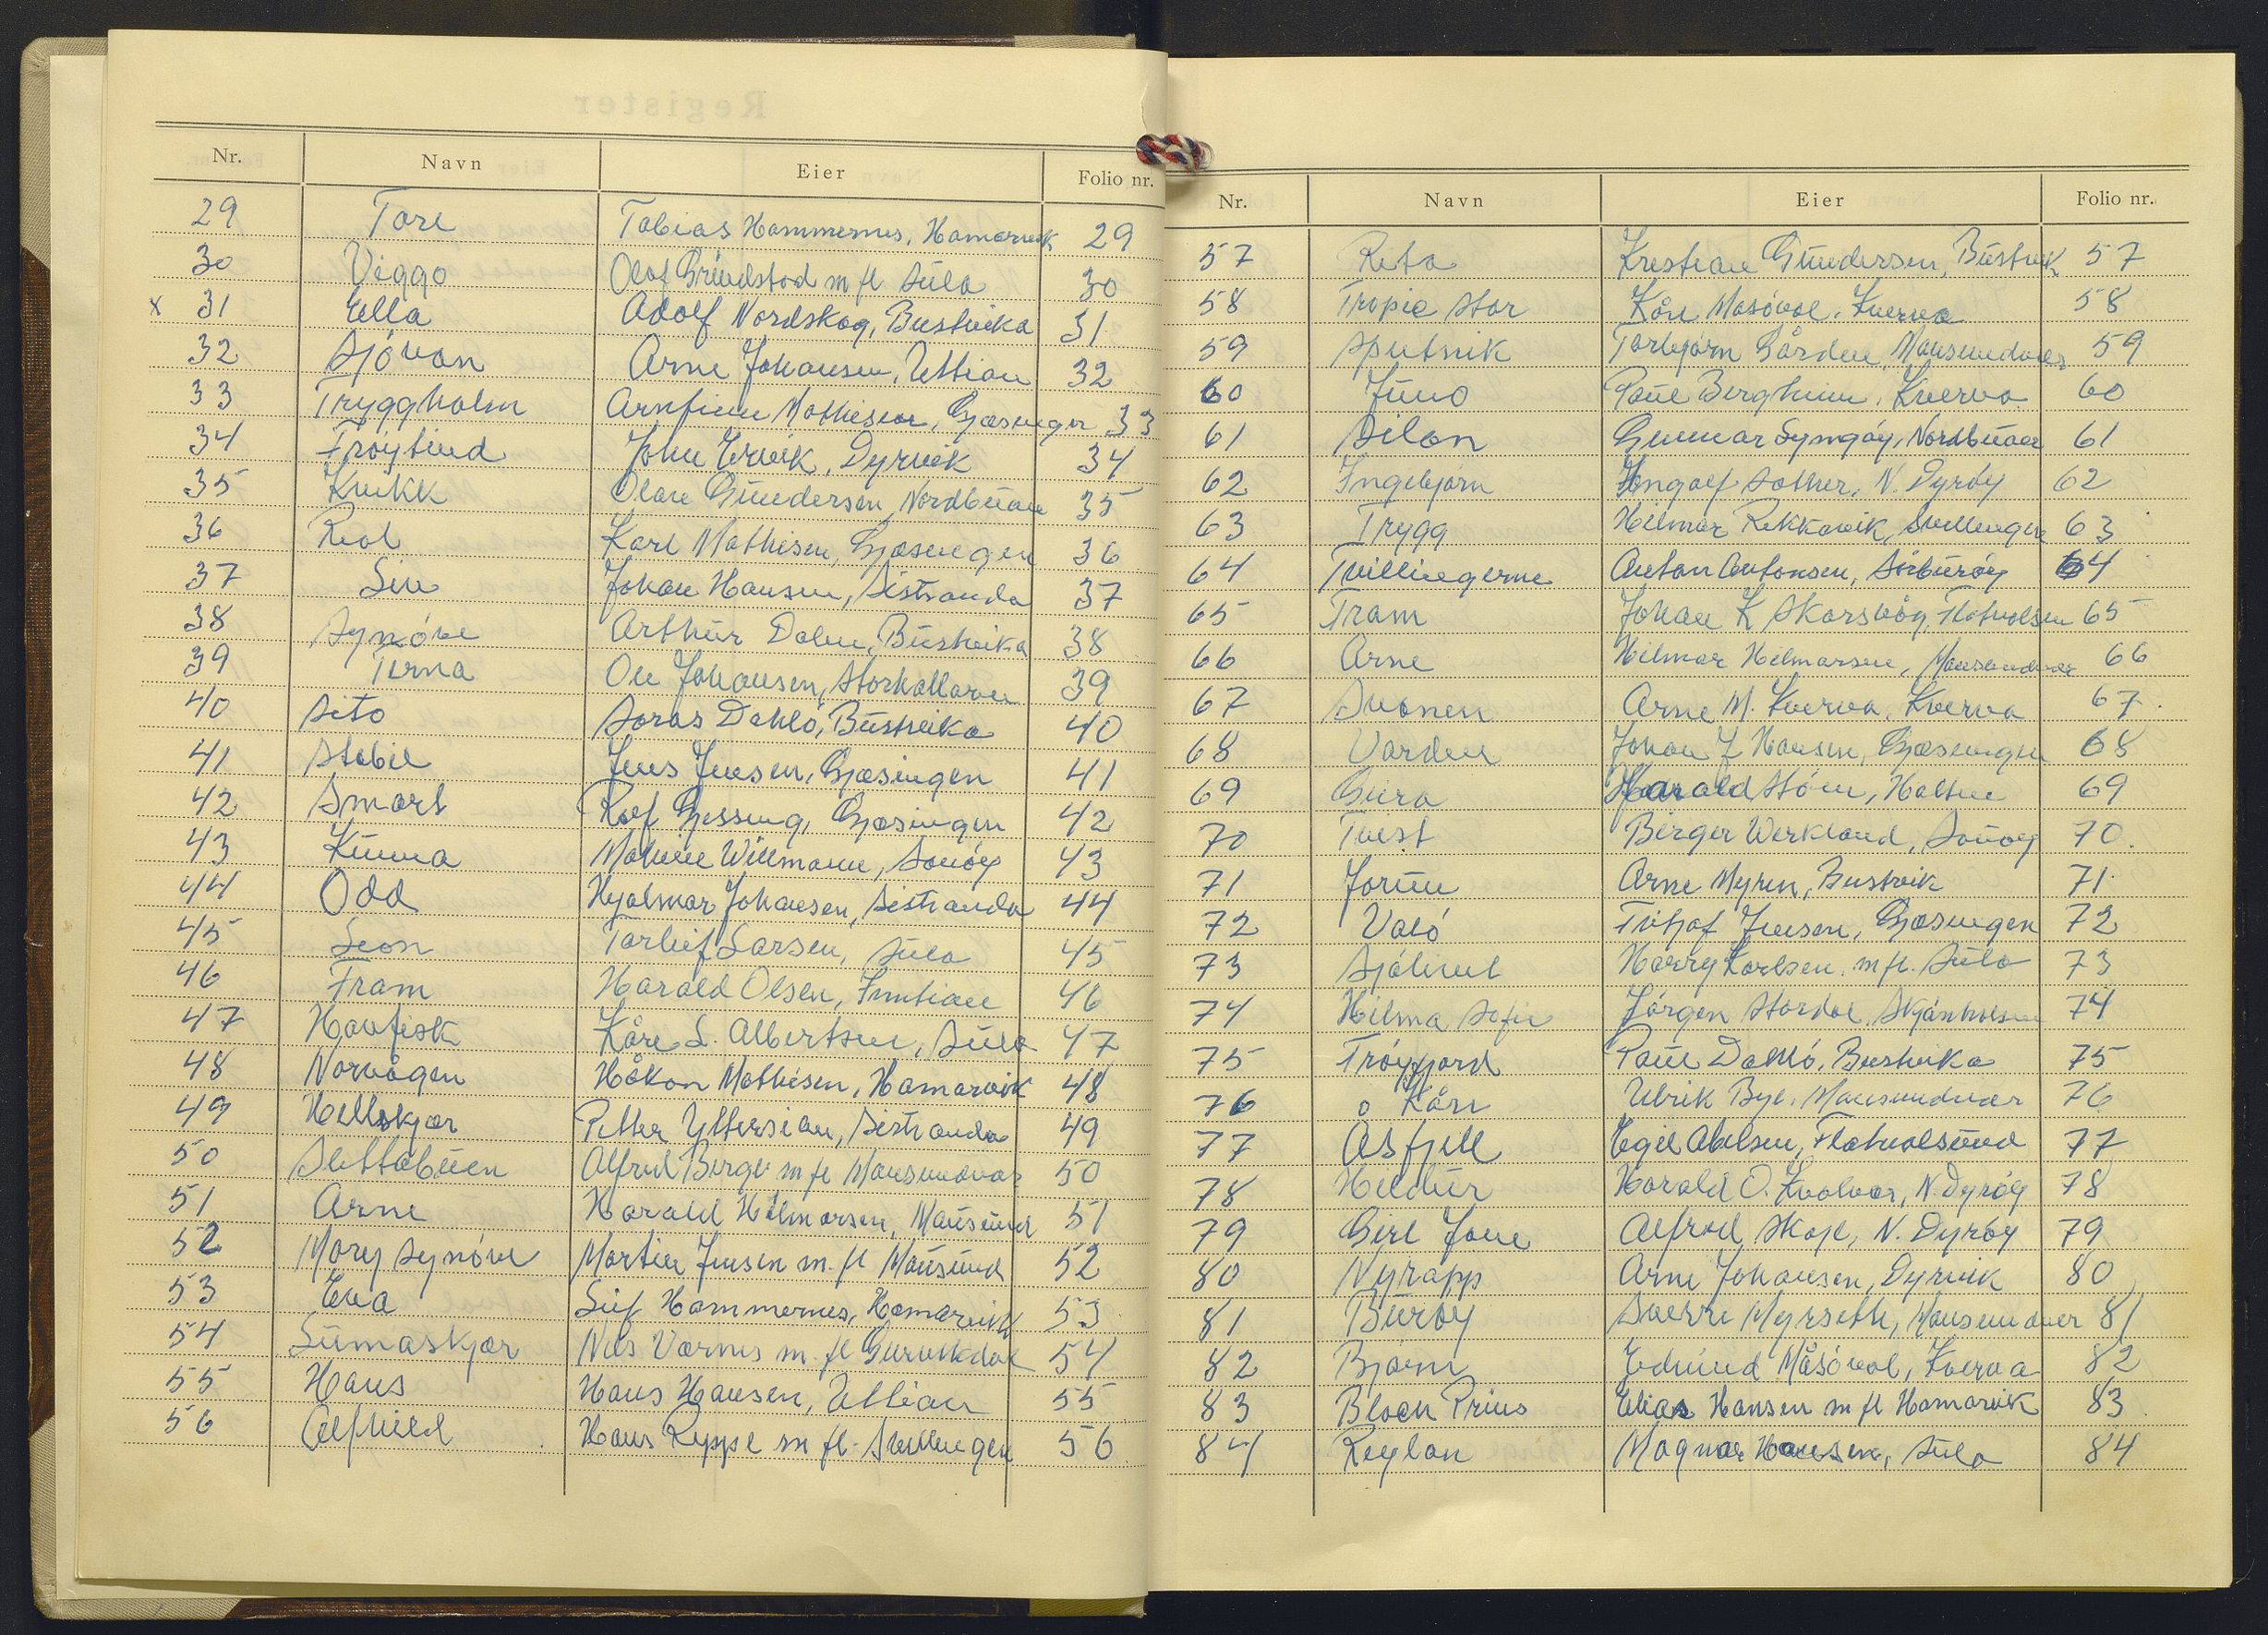 Nr. Navn Eier Folio nr.
29 Tore Tobias Hammernes, Hamarvik 29
30 Viggo Olaf Grindstad m fl Sula 30
x 31 Ella Adolf Nordskog, Bustvika 31
32 Sjövon Arne Johansen, Uttian 32
33 Tryggholm Arnfinn Mathiesen, Gjæsingen 33
34 Fröytind John Ervik, Dyrvik 34
35 Kvikk Olav Gundersen, Nordbuan 35
36 Real Karl Mathisen, Gjæsingen 36
37 Siv Johan Hansen, Sistranda 37
38 Synöve Arthur Dalen, Bustvika 38
39 Terna Ole Johansen, Storhallaren 39
40 Sito Soras Dahlö, Bustvika 40
41 Stabil Jens Jensen, Gjæsingen 41
42 Smart Rolf Gjessing, Gjæsingen 42
43 Kinna Willmann, Sauöy 43
44 Odd Hjalmar Johansen, Sistranda 44
45 Leon Torleif Larsen, Sula 45
46 Fram Harald Olsen, Inntian 46
47 Havfisk Kåre L. Albertsen, Sula 47
48 Norvågen Håkon Mathisen, Hamarvik 48
49 Hellskjær Petter Yttersian, Sistranda 49
50 Slettabuen Alfred Berge m fl Mausundvær 50
51 Arne Harald Hilmarsen, Mausund 51
52 Mary Synöve Martin Jensen m. fl Mausund 52
53 Eva Leif Hammernes, Hamarvik 53
54 Sumaskjær Nils Værnes m. fl Gurvikdal 54
55 Hans Hans Hansen, Uttian 55
56 Alfhild Hans Reppe m fl. Svellingen 56
Nr. Navn Eier Folio nr.
57 Reta Kristian Gundersen, Bustvik 57
58 Tropic Star Kåre Masöval, Kverva 58
59 Sputnik Torbjørn Gården, Mausundvær 59
60 Juno Paul Bergheim, Kverva 60
61 Silon Gunnar Syrngöy, Nordbuan 61
62 Ingebjørn Ingolf Sother, N. Dyröy 62
63 Trygg Hilmar Rekkavik, Svellingen 63
64 Tvillingerne Anton Antonsen, Sörburöy 64
65 Fram Johan K Skarsvåg, Flatvalsun 65
66 Arne Hilmar Hilmarsen, Mausundvær 66
67 Svanen Arne M. Kverva, Kverva 67
68 Varden Johan J Hansen, Gjæsingen 68
69 Gura Harald Stöen, Halten 69
70 Tvist Birger Werkland, Sauöy 70
71 Jorunn Arne Myren, Bustvik 71
72 Valö Fritjof Jensen, Gjæsingen 72
73 Sjölivet Harry Karlsen m fl. Sula 73
74 Hilma Sofie Jörgen Stordal, Skjärholmen 74
75 Fröyfjord Paul Dahlö, Bustvika 75
76 Kåre Ulrik Bye, Mausundvær 76
77 Åsfjell Egil Abelsen, Flatvalsund 77
78 Heldur Harald O. Kvalvær, N. Dyröy 78
79 Girl Jane Alfred Skage, N. Dyröy 79
80 Nyrapp Arne Johansen, Dyrvik 80
81 Buröy Sverre Myrseth, Mausundvær 81
82 Bjørn Edmund Måsöval, Kverva 82
83 Bloen Prins Elias Hansen m fl Hamarvik 83
84 Reylon Magnar Hansen, Sula 84